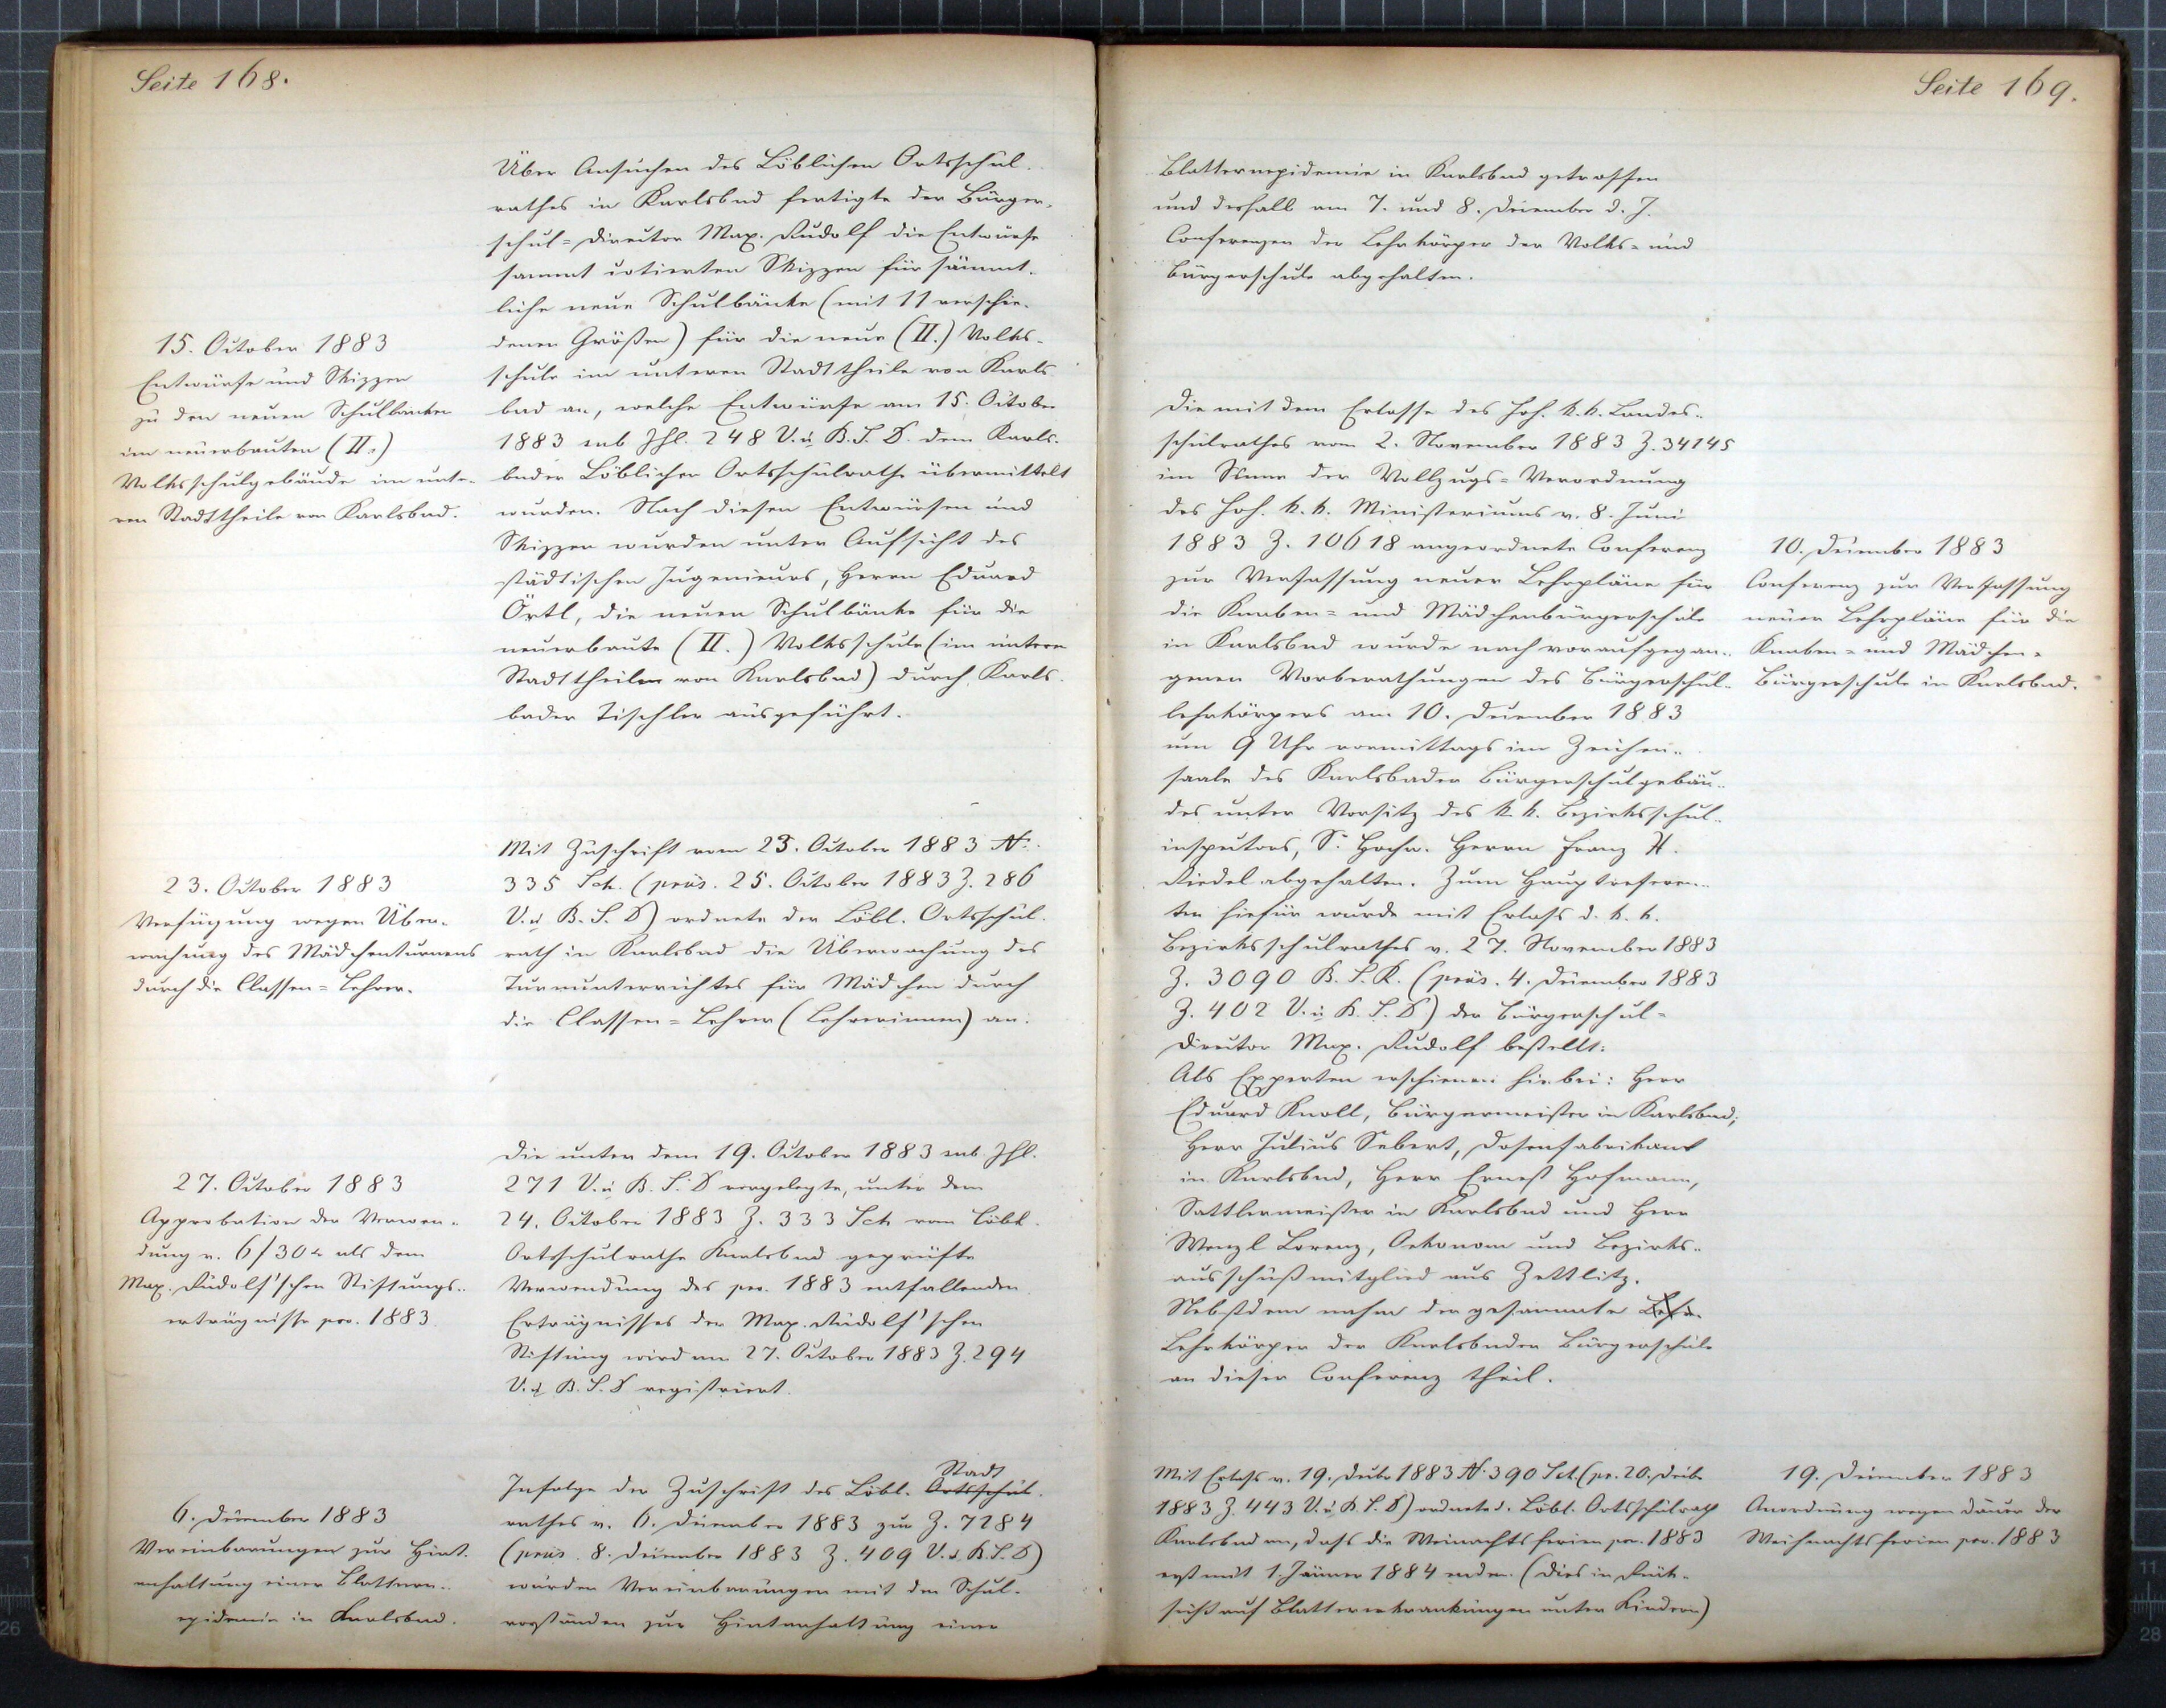 Seite 168.
Über Ansuchen des Löblichen Ortsschul-
rathes in Karlsbad fertigte der Bürger-
schul-Director Max. Rudolf die Entwürfe
sammt cotierten Skizzen für sämmt-
liche neue Schulbänke (mit 11 verschie-
denen Größen) für die neue (II.) Volks-
schule im unteren Stadttheile von Karls-
bad an, welche Entwürfe am 15. October
1883 sub Zhl. 248 V. u. B. S. D. dem Karls-
bader Löblichen Ortsschulrathe übermittelt
wurden. Nach diesen Entwürfen und
Skizzen wurden unter Aufsicht des
städtischen Ingenieurs, Herrn Eduard
Örtl, die neuen Schulbänke für die
neuerbaute (II.) Volksschule (im untern
Stadttheilen von Karlsbad) durch Karls-
bader Tischler ausgeführt.
15. October 1883
Entwürfe und Skizzen
zu den neuen Schulbänken
im neuerbauten (II.)
Volksschulgebäude im unte-
ren Stadttheile von Karlsbad.
Mit Zuschrift vom 23. October 1883 N.
335 Sch. (präs. 25. October 1883 Z. 286
V. u. B. S. D) ordnete der Löbl. Ortsschul-
rath in Karlsbad die Überwachung des
Turnunterrichtes für Mädchen durch
die Classen-Lehrer (Lehrerinnen) an.
23. October 1883
Verfügung wegen Über-
wachung des Mädchenturnens
durch die Classen-Lehrer.
Die unter dem 19. October 1883 sub Zhl.
271 V. u. B. S. D vorgelegte, unter dem
24. October 1883 Z. 333 Sch. vom Löbl.
Ortsschulrathe Karlsbad geprüfte
Verwendung des pro. 1883 entfallenden
Erträgnisses der Max. Rudolf'schen
Stiftung wird am 27. October 1883 Z. 294
V. u. B. S. D registriert.
27. October 1883
Approbation der Verwen-
dung v. 6 f 30 als dem
Max. Rudolf'schen Stiftungs-
erträgnisse pro. 1883.
Stadt
Infolge der Zuschrift des Löbl. Ortsschul-
rathes v. 6. December 1883 zur Z. 7284
(präs. 8. December 1883 Z. 409 V. u. B. S. D)
wurden Vereinbarungen mit den Schul-
vorständen zur Hintanhaltung einer
6. December 1883
Vereinbarungen zur Hint-
anhaltung einer Blattern-
epidemie in Karlsbad.
Seite 169.
Blatternepidemie in Karlsbad getroffen
und deshalb am 7. und 8. December d. J.
Conferenzen der Lehrkörper der Volks- und
Bürgerschule abgehalten.
Die mit dem Erlasse des hoh. k. k. Landes-
schulrathes vom 2. November 1883 Z. 34145
im Sinne der Vollzugs-Verordnung
des hoh. k. k. Ministeriums v. 8. Juni
1883 Z. 10618 angeordnete Conferenz
zur Verfassung neuer Lehrpläne für
die Knaben- und Mädchenbürgerschule
in Karlsbad wurde nach voraufgegan-
genen Vorberathungen des Bürgerschul-
lehrkörpers am 10. December 1883
um 9 Uhr vormittags im Zeichen-
saale des Karlsbader Bürgerschulgebäu-
des unter Vorsitz des k. k. Bezirksschul-
inspectors, Sr. Hochw. Herrn Franz H.
Riedel abgehalten. Zum Hauptreferen-
ten hiefür wurde mit Erlass d. k. k.
Bezirksschulrathes v. 27. November 1883
Z. 3090 B. S. R. (präs. 4. December 1883
Z. 402 V. u. B. S. D) der Bürgerschul-
director Max. Rudolf bestellt.
Als Experten erschienen hiebei: Herr
Eduard Knoll, Bürgermeister in Karlsbad;
Herr Julius Sebert, Dosenfabrikant
in Karlsbad, Herr Ernest Hofmann,
Sattlermeister in Karlsbad und Herr
Wenzl Lorenz, Oekonom und Bezirks-
ausschußmitglied aus Zettlitz.
Nebstdem nahm der gesammte
Lehrkörper der Karlsbader Bürgerschule
an dieser Conferenz theil.
10. December 1883
Conferenz zur Verfassung
neuer Lehrpläne für die
Knaben- und Mädchen-
Bürgerschule in Karlsbad.
Mit Erlass v. 19. Decbr 1883 N. 390 Sch. (pr. 20. Decbr
1883 Z. 443 V. u. B. S. D) ordnete d. Löbl. Ortsschulrath
Karlsbad an, dass die Weinachtsferien pro. 1883
erst mit 1. Jänner 1884 enden. (Dies in Rück-
sicht auf Blatternerkrankungen unter Kindern)
19. December 1883
Anordnung wegen Dauer der
Weihnachtsferien pro. 1883